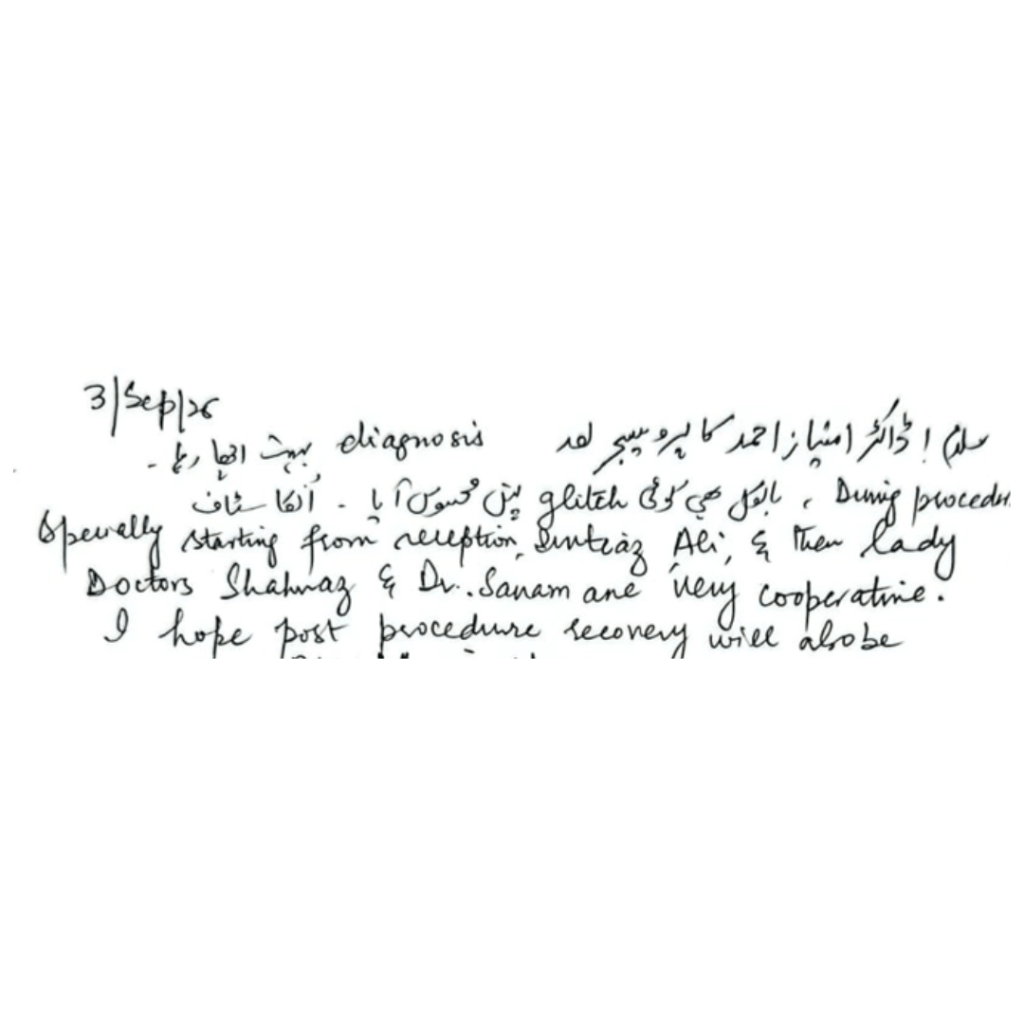 3/Sep/26
سلام! ڈاکٹر امتیاز احمد کا پروسیجر اور diagnosis بہت اچھا رہا۔
During procedure, بالکل بھی کوئی glitch نہیں محسوس آیا۔ اُنکا سٹاف
specially starting from reception, Imtiaz Ali, & then lady
Doctors Shahnaz & Dr. Sanam are very cooperative.
I hope post procedure recovery will also be